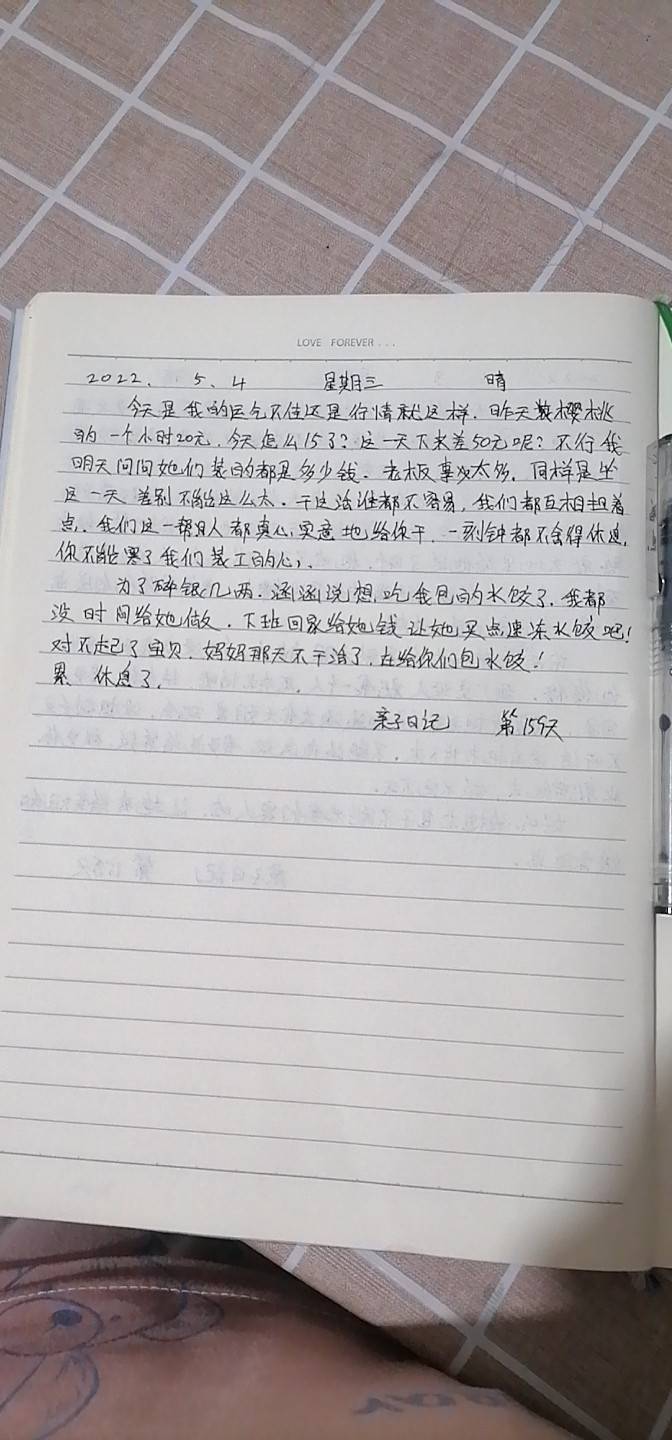 LOVE FOREVER...
2022. 5. 4 星期三 晴
今天是我的运气不佳还是行情就这样. 昨天装樱桃
的一个小时20元. 今天怎么15了? 这一天下来差50元呢? 不行我
明天问问她们装的都是多少钱. 老板事太多. 同样是坐
这一天 差别不能这么大. 干这活谁都不容易, 我们都互相担着
点. 我们这一帮女人都真心实意地给你干. 一刻钟都不舍得休息.
你不能寒了我们装工的心,.
为了碎银几两. 涵涵说想吃我包的水饺了. 我都
没时间给她做. 下班回家给她钱让她买点速冻水饺吧!
对不起了宝贝. 妈妈那天不干活了. 在给你们包水饺!
累 休息了.
亲子日记 第159天